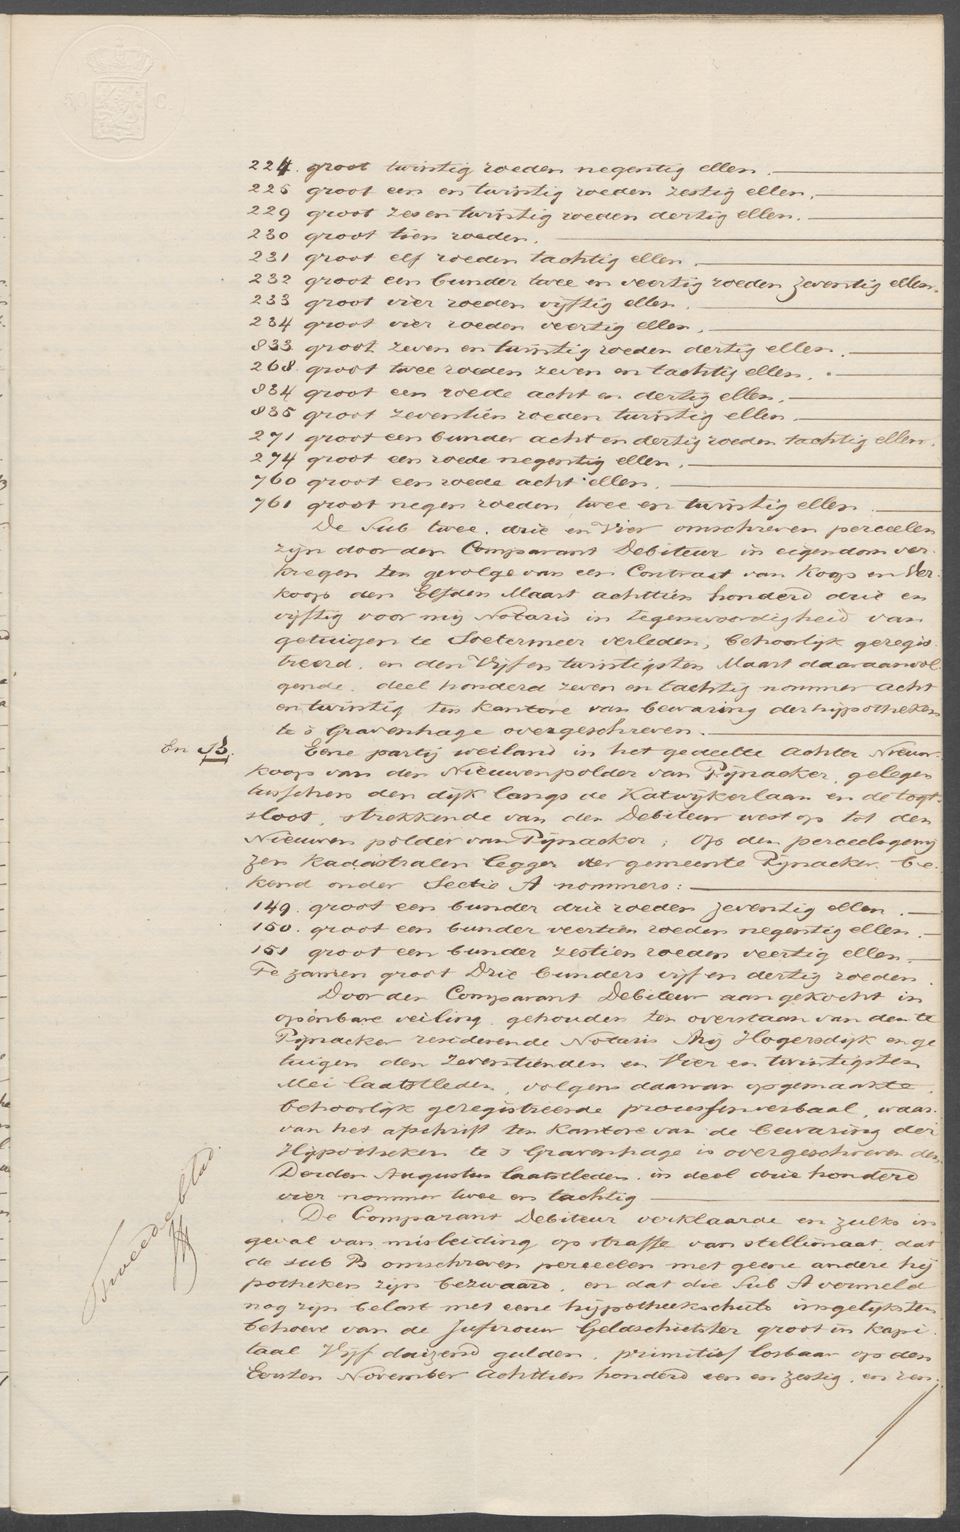 50 C.
224. groot twintig roeden negentig ellen.
225 groot een en twintig roeden zestig ellen.
229 groot zes en twintig roeden dertig ellen.
230 groot tien roeden.
231 groot elf roeden tachtig ellen.
232 groot een bunder twee en veertig roeden zeventig ellen.
233 groot vier roeden vijftig ellen.
234 groot vier roeden veertig ellen.
833 groot zeven en twintig roeden dertig ellen.
268. groot twee roeden zeven en tachtig ellen.
834 groot een roede acht en dertig ellen.
835 groot zeventien roeden twintig ellen.
271 groot een bunder acht en dertig roeden tachtig ellen.
274 groot een roede negentig ellen.
760 groot een roede acht ellen.
761 groot negen roeden twee en twintig ellen
De Sub twee, drie en Vier omschreven perceelen
zijn door den Comparant Debiteur in eigendom ver-
kregen ten gevolge van een Contract van Koop en Ver-
koop den Elfden Maart achttien honderd drie en
vijftig voor mij Notaris in tegenwoordigheid van
getuigen te Soetermeer verleden, behoorlijk geregis-
treerd, en den Vijf en twintigsten Maart daaraanvol-
gende, deel honderd zeven en tachtig nommer acht
en twintig ten kantore van bewaring der hypotheken
te s Gravenhage overgeschreven.
En B. Eene partij weiland in het gedeelte achter Nieuw-
koop van den Nieuwenpolder van Pijnacker, gelegen
tusschen den dijk langs de Katwijkerlaan en de togt-
sloot, strekkende van den Debiteur west op tot den
Nieuwen polder van Pijnacker; op den perceelsgewij
zen kadastralen legger der gemeente Pijnacker be-
kend onder Sectie A nommers:
149. groot een bunder drie roeden zeventig ellen.
150. groot een bunder veertien roeden negentig ellen.
151 groot een bunder zestien roeden veertig ellen.
Te zamen groot Drie bunders vijf en dertig roeden.
Door den Comparant Debiteur aangekocht in
openbare veiling, gehouden ten overstaan van den te
Pijnacker residerende Notaris Arij Hogersdijk en ge
tuigen den Zeventienden en Vier en twintigsten
Mei laatstleden, volgens daarvan opgemaakte
behoorlijk geregistreerde procesverbaal, waar-
van het afschrift ten kantore van de bewaring der
Hijpotheken te s Gravenhage is overgeschreven den
Derden Augustus laatstleden in deel drie honderd
vier nommer twee en tachtig
De Comparant Debiteur verklaarde en zulks in
geval van misleiding op straffe van stellionaat, dat
de sub B omschreven perceelen met geene andere hij
potheken zijn bezwaard, en dat die Sub A vermeld
nog zijn belast met eene hijpotheekschuld insgelijks ten
behoeve van de Jufvrouw Geldschietster groot in kapi-
taal Vijf duizend gulden, primitief losbaar op den
Eersten November achttien honderd een en zestig, en ren-
Tweede blad.